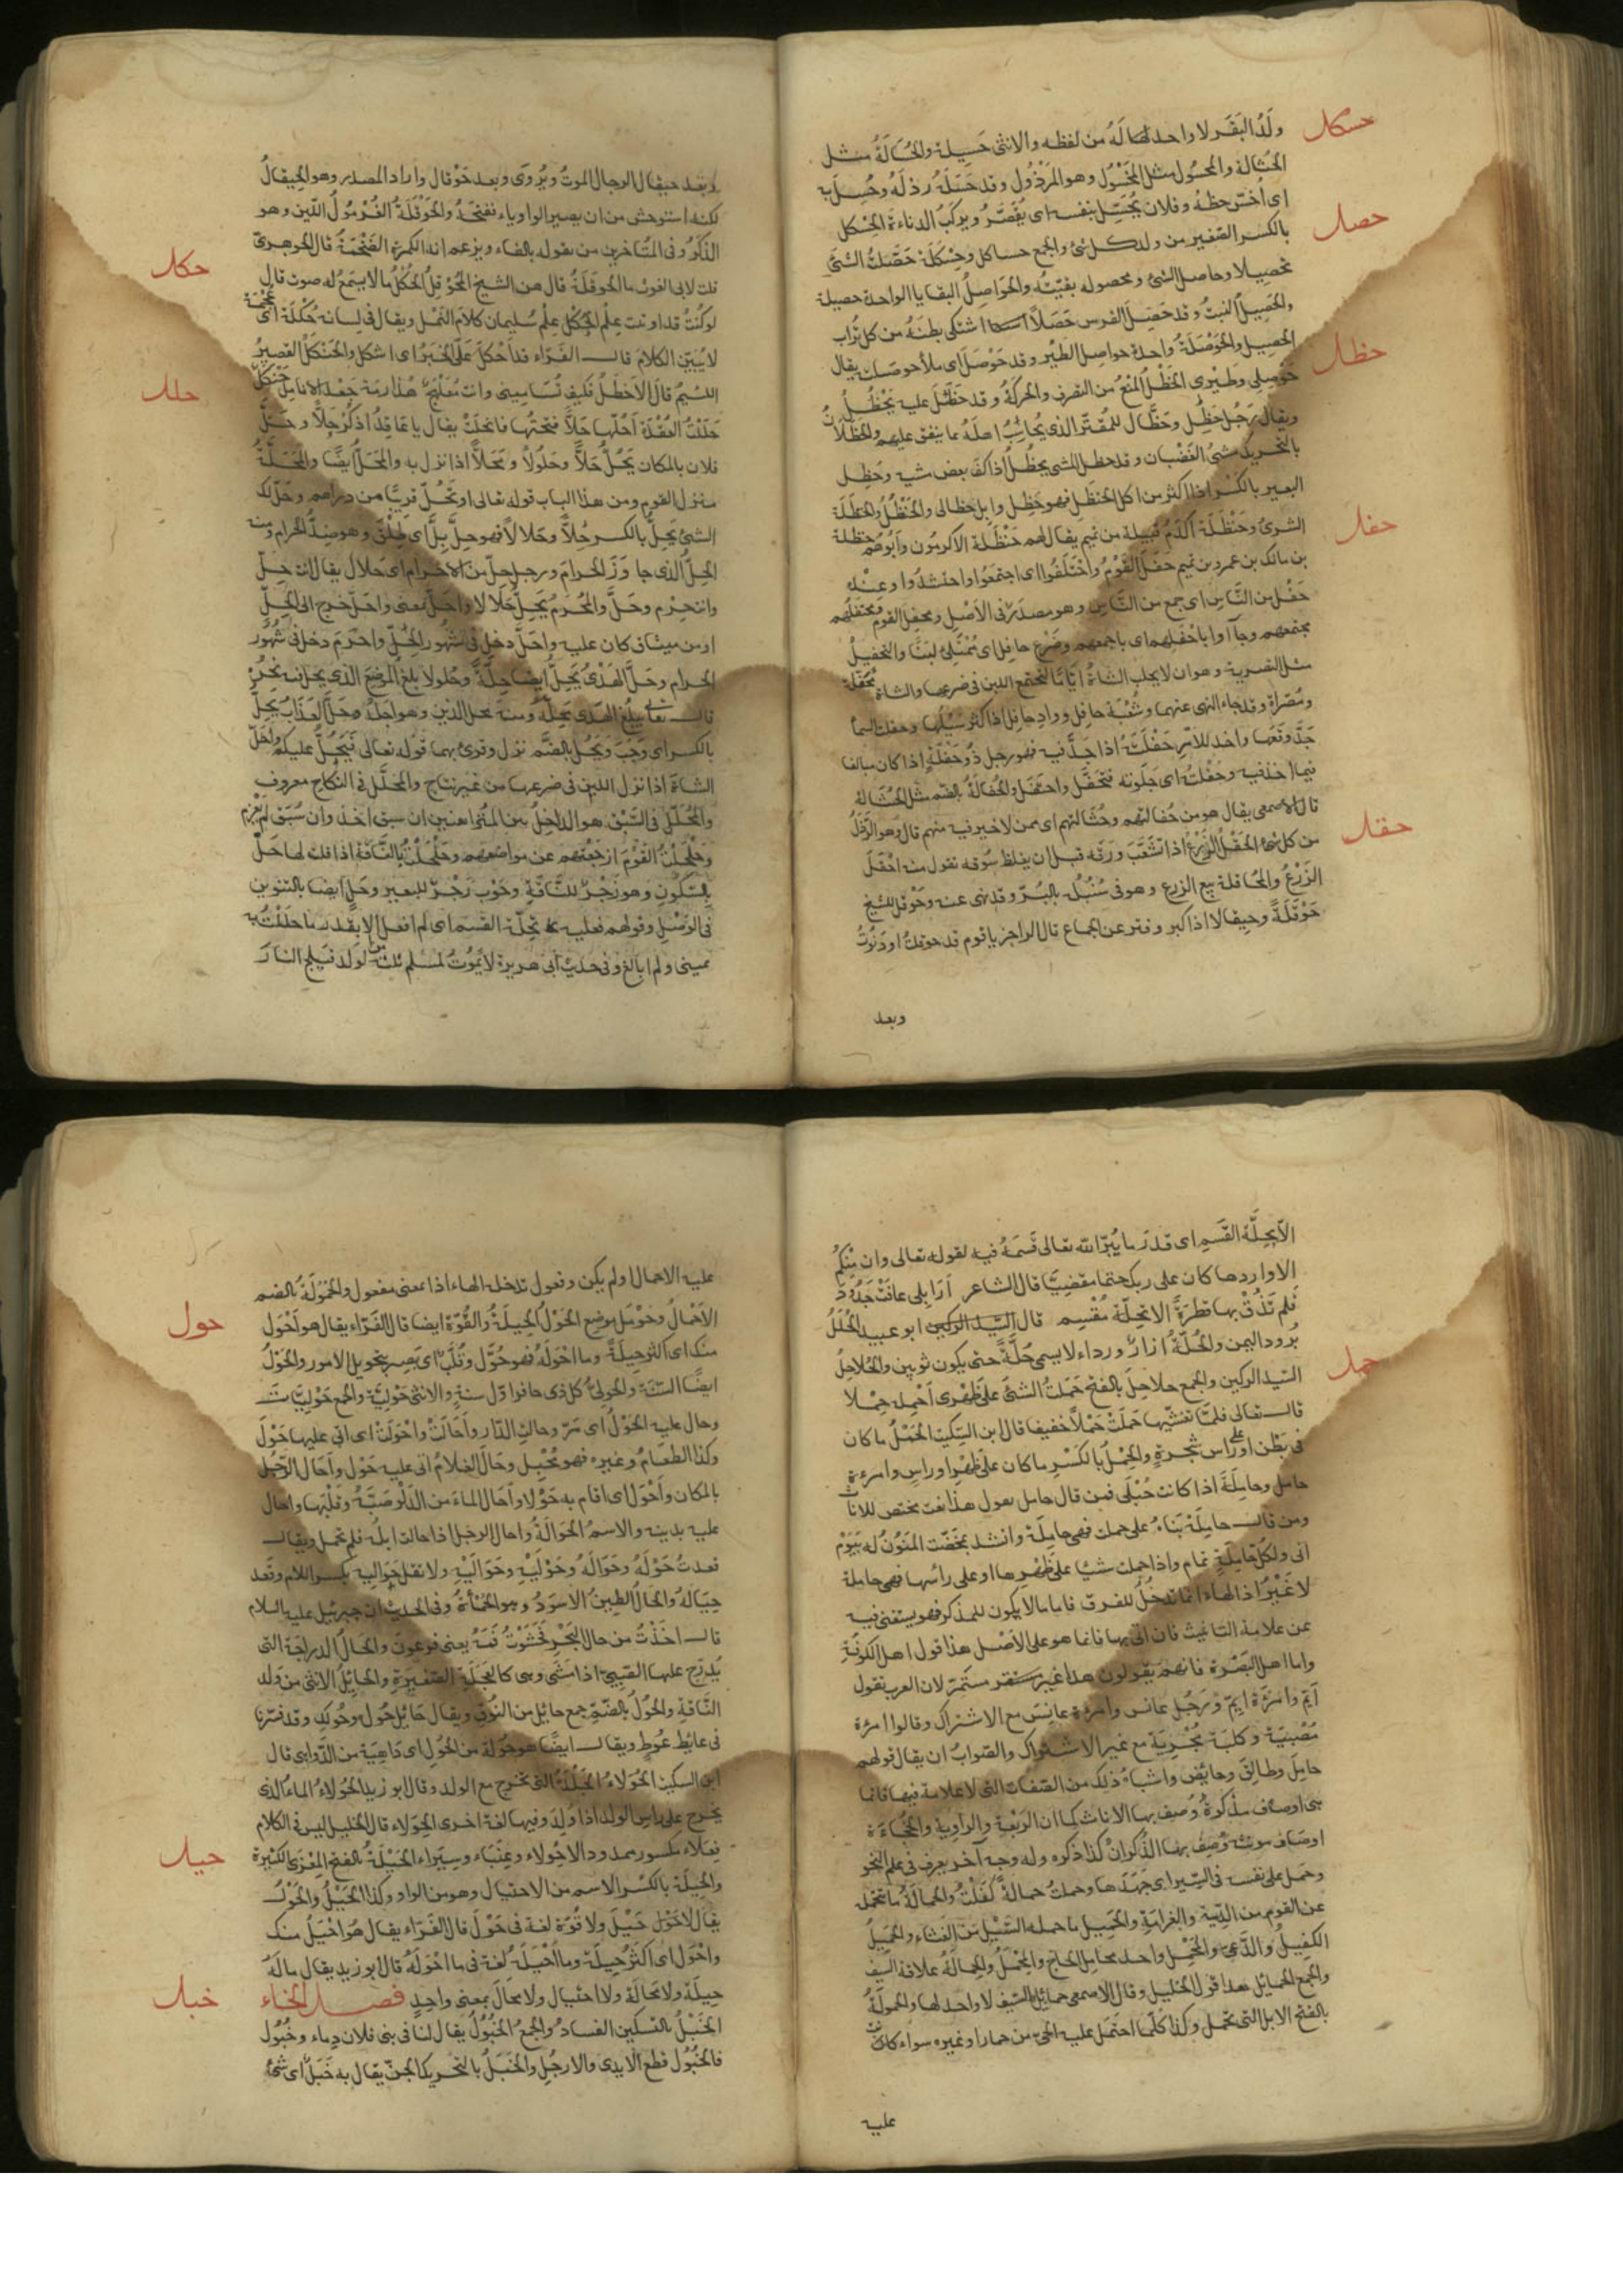 حسكل
ولَدُ البَقَر لا واحد لها لَهُ من لفظه والانثى حَسِيلة والحُسَالَةُ مثل
الحُثالة والمحسُول مثل المخْسُول وهو المرْذُول وقد حَسَلَهُ رذلَهُ وحُسِلَ به
اى اُخسّ حظهُ وفلان يُحَسِّل بنفسه اى يُقَصِّرُ ويركبُ الدناءة الحِسْكل
حصل
بالكسر الصّغير من ولد كل شئ والجمع حساكل وحِسْكلَة حَصّلتُ الشئَ
تحصيلا وحاصل الشئ ومحصوله بقيّتُه والحَوَاصِلُ البقايا الواحدة حصيلة
والحَصِيلُ النبتُ وقد حَصِلَ الفرس حَصَلاً اشتكى بطنَهُ من كل تُراب
حظل
الحصيل والحَوْصَلَةُ واحدة حواصل الطَّيْر وقد حَوْصَلَ اى ملأ حوصلته يقال
حَوْصِلى وَطيْرِى الحَظْلُ المنعُ من التصرف والحركةُ وقد حَظَلَ عليه يَحْظُلُ
ويقال رَجُل حَظِلٌ وحَظَّال للمُقتّر الذى يُحَاسِبُ اهلهُ بما ينفق عليهم والحَظَلانُ
بالتحريك مشىُ الغَضْبان وقد حظل المشى يحظُلُ اذا كفّ بعض مشيه وحَظِل
البعير بالكَسْر اذا اكثر من اكل الحنظل فهو حَظِل وابل حظالى والحَنْظَلُ والحَنظلة
الشرىُ وحَنْظَلَة اكْرَمُ قبيلة من تميم يقال لهم حَنْظَلة الاكرمُون وابوهم حنظلة
حفل
بن مالك بن عمرو بن تميم حفَلَ القَوْمُ واحْتَفَلُوا اى اجتمَعُوا واحتشدُوا وعنده
حَفْل من النّاس اى جمع من النّاس وهو مصدَر فى الأصْلِ ومحفل القوم ومحتفلهم
مجتمعهم وجآءوا باحْفلهم اى باجمعهم وضَرع حافل اى مُمْتَلِئ لبنًا والتحفيلُ
مثل التصرية وهو ان لا يحلب الشاةُ ايّامًا ليجتمع اللبن فى ضرعها والشاة مُحَفّلة
ومُصَرّاة وقد جاء النهى عنهما وشعْبَة حافل ووادِ حافل اذا كثر سَيْلُها وحفلت السماُ
جَدَّ وقعها واَخذ للأمر حَفْلَتَهُ اذا جَدَّ فيه فهو رجل ذو حَفْلَةٍ اذا كان مبالغا
فيما اخذ فيه وحَفَّلتُه اى جَلَوته فتحَفّل واحتفل والحُفَالَةُ بالضم مثل الحُثَالة
قال الاصمعى يقال هو من حُفالتهم وحُثالتهم اى ممن لا خير فيه منهم قال وهو الرَّذلُ
حقل
من كل شئ الحَقْلُ الزَرْعُ اذا تشَعَّبَ وَرَقه قبل ان يغلظ سُوقه تقول منه احْقَلَ
الزَرْعُ والمحَاقلة بيع الزرع وهو فى سُنْبُله بالبُرّ وقد نهى عنه وحَوْقل الشيخ
حَوْقَلَةً وحيقالا اذا كبر وفتر عن الجماع قال الراجز يا قوم قد حوقلتُ او دَنَوْتُ
وبعد
وبَعْد حيقال الرجال الموتُ ويُروَى وبعد حَوْقال واراد المصدر وهو الحِيقالُ
لكنه استوحش من ان يصير الواو ياء ففتحهُ والحَوْقَلَةُ الغُرْمُولُ اللّين وهو
الذكَرُ وفى المتأخرين من يقوله بالفاء ويزعم انه الكمرة الضَخْمَةُ قال الجوهرىّ
حكل
قلت لابى الغوث ما الحوقلَةُ قال هن الشيخ المُحَوْقِلُ الحُكْلُ ما لا يسمَعُ له صوت قال
لو كُنتُ قد اوتيت عِلْم الحُكْل عِلْمَ سُليمان كلامَ النَّمْل ويقال فى لسانه حُكْلَة اى عُجْمَة
لا يُبيّن الكلامَ قال الفَرّاء قد اَحْكَلَ عَلَىَّ الخَبَرُ اى اشكل والحَنْكَلُ القصيرُ
اللئيمُ قال الأخطَلُ فكيف تُسَامِينى وانت مُعَلْهَجٌ هُذارِمَة جَعْد الانامل حَنْكَلُ
حلل
حَلَلْتُ العُقْدَة اَحُلّها حَلاًّ فتحتُها فانحلتْ يقال يا عَاقِدُ اذكُرْ حَلاًّ وحَلَّ
فلان بالمكان يَحُلُّ حَلاًّ وحُلُولاً ومَحَلاًّ اذا نزل به والمَحَلُّ ايضًا والمَحَلَّةُ
منزل القوم ومن هذا الباب قوله تعالى او تحُلّ قريبًا من دارهم وحَلّ لك
الشئ يَحِلُّ بالكسر حِلاًّ وحَلالاً فهو حِلٌّ بِلٌّ اى طِلْقٌ وهو ضِدُّ الحَرام ومنه
الحِلُّ الذى جاوَزَ الحَرامَ ورجل حِلٌّ من الاحرام اى حلال يقال انت حِلٌّ
وانت حِرْم وحَلَّ والمُحْرِمُ يَحِلُّ حَلَالا واَحَلَّ بمعنى واحَلَّ خرج الى الحِلِّ
او من ميثاق كان عليه واَحلَّ دخل فى شُهُور الحِلّ واحْرَمَ دخل فى شُهُور
الحرام وحَلَّ الهَدْىُ يَحِلُّ ايضا حِلَّةً وحُلولا بلغ المَوْضِعَ الذى يحل فيه نَحْرُهُ
قال تعالى يبلغ الهَدْى مَحِلّهُ ومنهُ محل الدَّين وهو اجَلُهُ وحَلَّ العَذَابُ يَحِلُّ
بالكسر اى وَجَبَ وَيَحُلُّ بالضَّم نزل وقرئ بهما قوله تعالى فَيَحُلَّ عليكم واَحَلَّ
الشاةُ اذا نزل اللبن فى ضرعها من غير نتاج والمحلّل فى النكاح معروف
والمُحَلّل فى السَّبْق هو الداخل بين المُتَراهنين ان سبق اخذ وان سُبِقَ لم يَغْرَم
وحَلْحَلْتُ القَوْمَ ازعَجْتُهم عن مواضعهم وحَلْحَلْتُ بالنّاقة اذا قلت لها حَلْ
بالسّكُون وهو زَجْرٌ للنَّاقَة وحَوْب زَجْرٌ للبعير وحَلٍ ايضا بالتنوين
فى الوَصْل وقولهم فعلته تَحِلّةَ القسَم اى لم افعل الا بقدر ما حَلّلْتُ به
يمينى ولم ابالغ وفى حديث ابى هريرة لا يَمُوتُ لمسلم ثلثة من لوَلد فيلج النارَ
الّا تَحِلَّة القَسَم اى قدرَ ما يُبِرّ الله تعالى قَسَمَهُ فيه لقوله تعالى وان مِنكُم
الا واردها كان على ربك حتما مقضيًّا قال الشاعر اَرَى ابلى عافَتْ جَدُودَ
فلم تَذُقْ بها قطرَةً الا تَحِلّةَ مُقْسِم قال السّيد الركين ابو عبيد الحُلَلُ
بُرودُ اليمن والحُلّةُ ازارٌ ورداء لا يسمى حُلّةً حتى يكون ثوبين والحُلاحِلُ
حمل
السّيد الركين والجمع حلاحِل بالفتح حَمَلتُ الشئَ على ظَهْرى اَحْمِله حِمْلا
قال تعالى فلمّا تغشّيها حَمَلَتْ حَمْلاً خفيفا قال ابن السّكيت الحَمْلُ ما كان
فى بَطْن او على راس شجرةٍ والحِمْلُ بالكَسْرِ ما كان على ظهْرٍ او راس وامرءة
حامِل وحامِلَة اذا كانت حُبْلَى فمن قال حامل يعول هذا نعت مختص للاناث
ومن قال حامِلَة بَناهُ على حملت فهى حامِلَة وانشد تمخّضت المَنوُنُ له بيَوْم
اَنى ولكُلّ حامِلَةٍ تمام واذا حملت شيئا على ظَهْرها او على راسها فهى حاملة
لا غَيْرُ اذ الهاء انما تدخُلُ للفرق فاما ما لا يكون للمذكر فهو يستغنى فيه
عن علامة التانيث فان اتى بها فانما هو على الأصل هذا قول اهل الكوفةِ
واما اهل البَصْرة فانهم يقولون هذا غير مستمرّ لان العرب تقول
اَيّم وامْرَءة ايِمٌ ورَجُل عانس وامرءة عانس مع الاشتراك وقالوا امرءة
مُصْبِيَة وكلبَة مُجْرِيَة مع غير الاشتراك والصّوابُ ان يقال قولهم
حامِل وطالِق وحائِض واشباهُ ذلك من الصّفات التى لا علامة فيها فانما
هى اوصاف مذكرةٌ وُصِف بها الاناث كما ان الرَبْعَة والرّاوية والخُجَاءَة
اوصَاف مونثة وُصِفَ بها الذُكْرانُ كذا ذكره وله وجه آخر يعرف فى علم النحو
وحَمل على نفسه فى السّير اى جَهَدَها وحملتُ حمالةً كَفَلْتُ والحَمالَةُ ما تتحمله
عن القوم من الدّية والغرامَةِ والحَمِيل ما حمله السّيْل من الغثاء والحَمِيلُ
الكفيلُ والدَّعىّ والمحْمِل واحد محامِل الحاج والمِحْمَلُ والحِمالَةُ علاقة السّيف
والجمع الحمائل هذا قول الخليل وقال الاصمعى حمائل السّيف لا واحد لها والحَمولَةُ
بالفتح الابل التى تحمل وكذا كلّما احتمل عليه الحىّ من حمار او غيره سواء كانت
عليه
عليه الاحمال او لم يكن وفعول تدخله الهاء اذا بمعنى مفعول والحُمُولَةُ بالضم
حول
الاحْمال وحَوْمَل موضع الحَوْل الحِيلةُ والقُوّة ايضا قال الفَرّاء يقال هو اَحْوَل
منك اى اكثر حِيلَةً وما اَحْوَلَهُ فهو حُوَّل وقُلَّبٌ اى بَصير بتحويل الامور والحَوْلُ
ايضًا السّنةُ والحَوْلىُّ كل ذى حافر اوّل سنةٍ والانثى حَوْليّة والجمع حَوْليّات
وحال عليه الحَوْلُ اى مَرّ وحالت الدّار واَحَالَتْ واَحْوَلَتْ اى اتى عليها حَوْلٌ
وكذا الطعَامُ وغيره فهو مُحِيل وحَالَ الغلامُ اتى عليه حَوْل واَحَال الرّجل
بالمكان واَحْوَلَ اى اقام به حَوْلا واَحَال الماءَ من الدَلْو صَبَّهُ وقَلبَها واحال
عليه بدينه والاسم الحَوَالَةُ واحال الرجل اذا حالت ابله فلم تحمل ويقال
قعدتُ حَوْلَهُ وحَوَالَهُ وحَوْلَيْهِ وحَوَالَيْهِ ولا تقل حَوَالِيهِ بكسر اللام وقَعَد
حِيَالَهُ والحالُ الطِينُ الأسوَدُ وهو الحَمْأةُ وفى الحديث ان جبرئيل عليه السلام
قال اخَذْتُ من حال البَحْر فحَشَوْتُ فمَهُ يعنى فرعَونَ والحالُ الدراجَة التى
يُدرّج عليها الصّبىّ اذا مَشَى وهى كالعَجَلَة الصّغيرة والحايِلُ الانثى من وَلَد
النّاقة والحُولُ بالضّمّ جمع حائِل من النُوق ويقال حَائِل حُول وحُولَل وقد فسّرنا
فى عائِط عُوطٍ ويقال ايضًا هو حُوَلَة من الحُوَل اى دَاهِيَة من الدَّواهى قال
ابن السكيت الحُوَلاءُ الجِلْدَةُ التى تخرج مع الولد وقال ابو زيد الحُوَلاءُ الماءُ الذى
يخرج على راس الولد اذا وُلِدَ وفيها لغة اخرى الحِوَلاء قال الخليل ليس فى الكلام
حيل
فِعَلاء مكسور ممدود الّا حِوَلاء وعِنَبَاء وسِيَرَاء الحَيْلَةُ بالفتح المِعْزَى الكثيرة
والحِيلَة بالكسْر الاسم من الاحتيال وهو من الواو وكذا الحَيْلُ والحَوْلُ
يقال لا حَوْل حَيْلَ ولا قُوّة لغة فى حَوْلَ قال الفَرّاء يقال هُوَ اَحْيَلُ منك
واَحْوَل اى اكثَرُ حِيلَة وما اَحْيَلَهُ لغة فى ما اَحْوَلَهُ قال ابو زيد يقال ما لَهُ
خبل
حِيلَة ولا مَحالَة ولا احتيال ولا مَحالَ بمعنى واحِدٍ فصل الخاء
الخَبْلُ بالتسكين الفسادُ والجمعُ الخُبُولُ يقال لنا فى بنى فلان دِماء وخُبُول
فالخُبُول قطع الايدى والارجُلِ والخَبَلُ بالتحريك الجنّ يقال به خَبَلٌ اى شئ